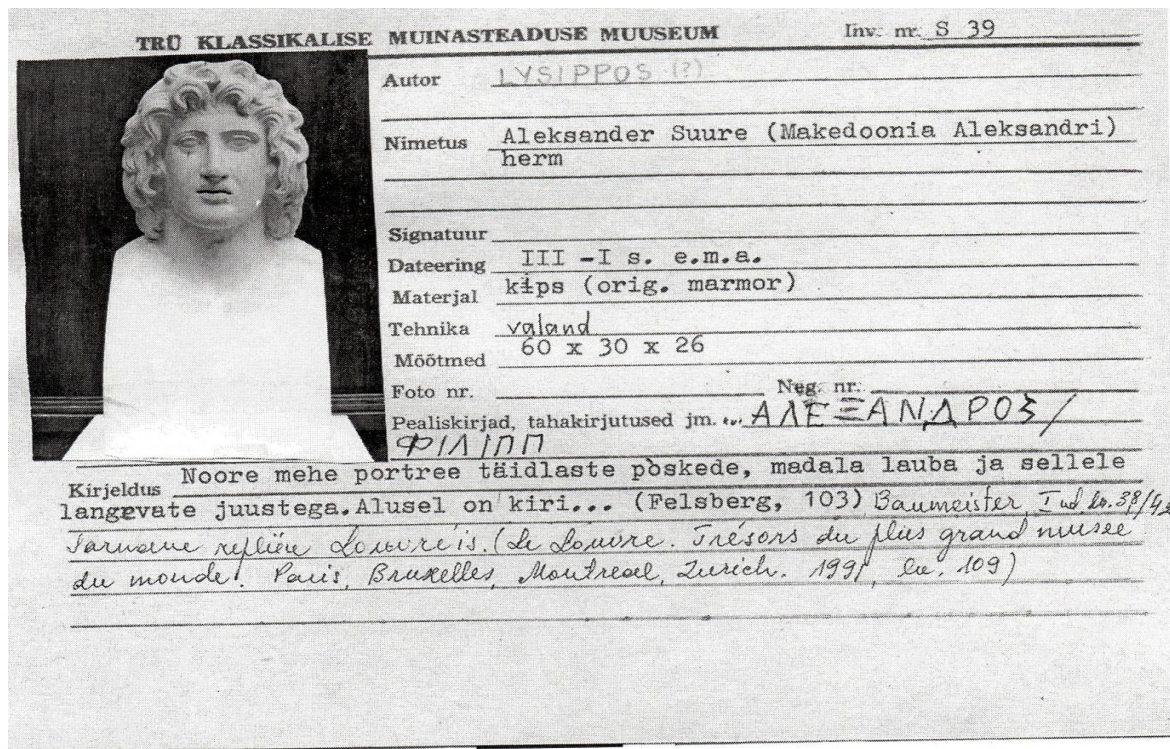 TRÜ KLASSIKALISE MUINASTEADUSE MUUSEUM Inv. nr. S 39
Autor LYSIPPOS (?)
Nimetus Aleksander Suure (Makedoonia Aleksandri)
herm
Signatuur
Dateering III -I s. e.m.a.
Materjal kips (orig. marmor)
Tehnika valand
Mõõtmed 60 x 30 x 26
Foto nr. Neg. nr.
Pealiskirjad, tahakirjutused jm. ... ΑΛΕΞΑΝΔΡΟΣ/
ΦΙΛΙΠΠ
Kirjeldus Noore mehe portree täidlaste põskede, madala lauba ja sellele
langevate juustega. Alusel on kiri... (Felsberg, 103) Baumeister, I 38/42
Sarnane Louvre'is. (Le Louvre. Trésors du plus grand musée
du monde. Paris, Bruxelles, Montreal, Zurich. 1991, lk. 109)